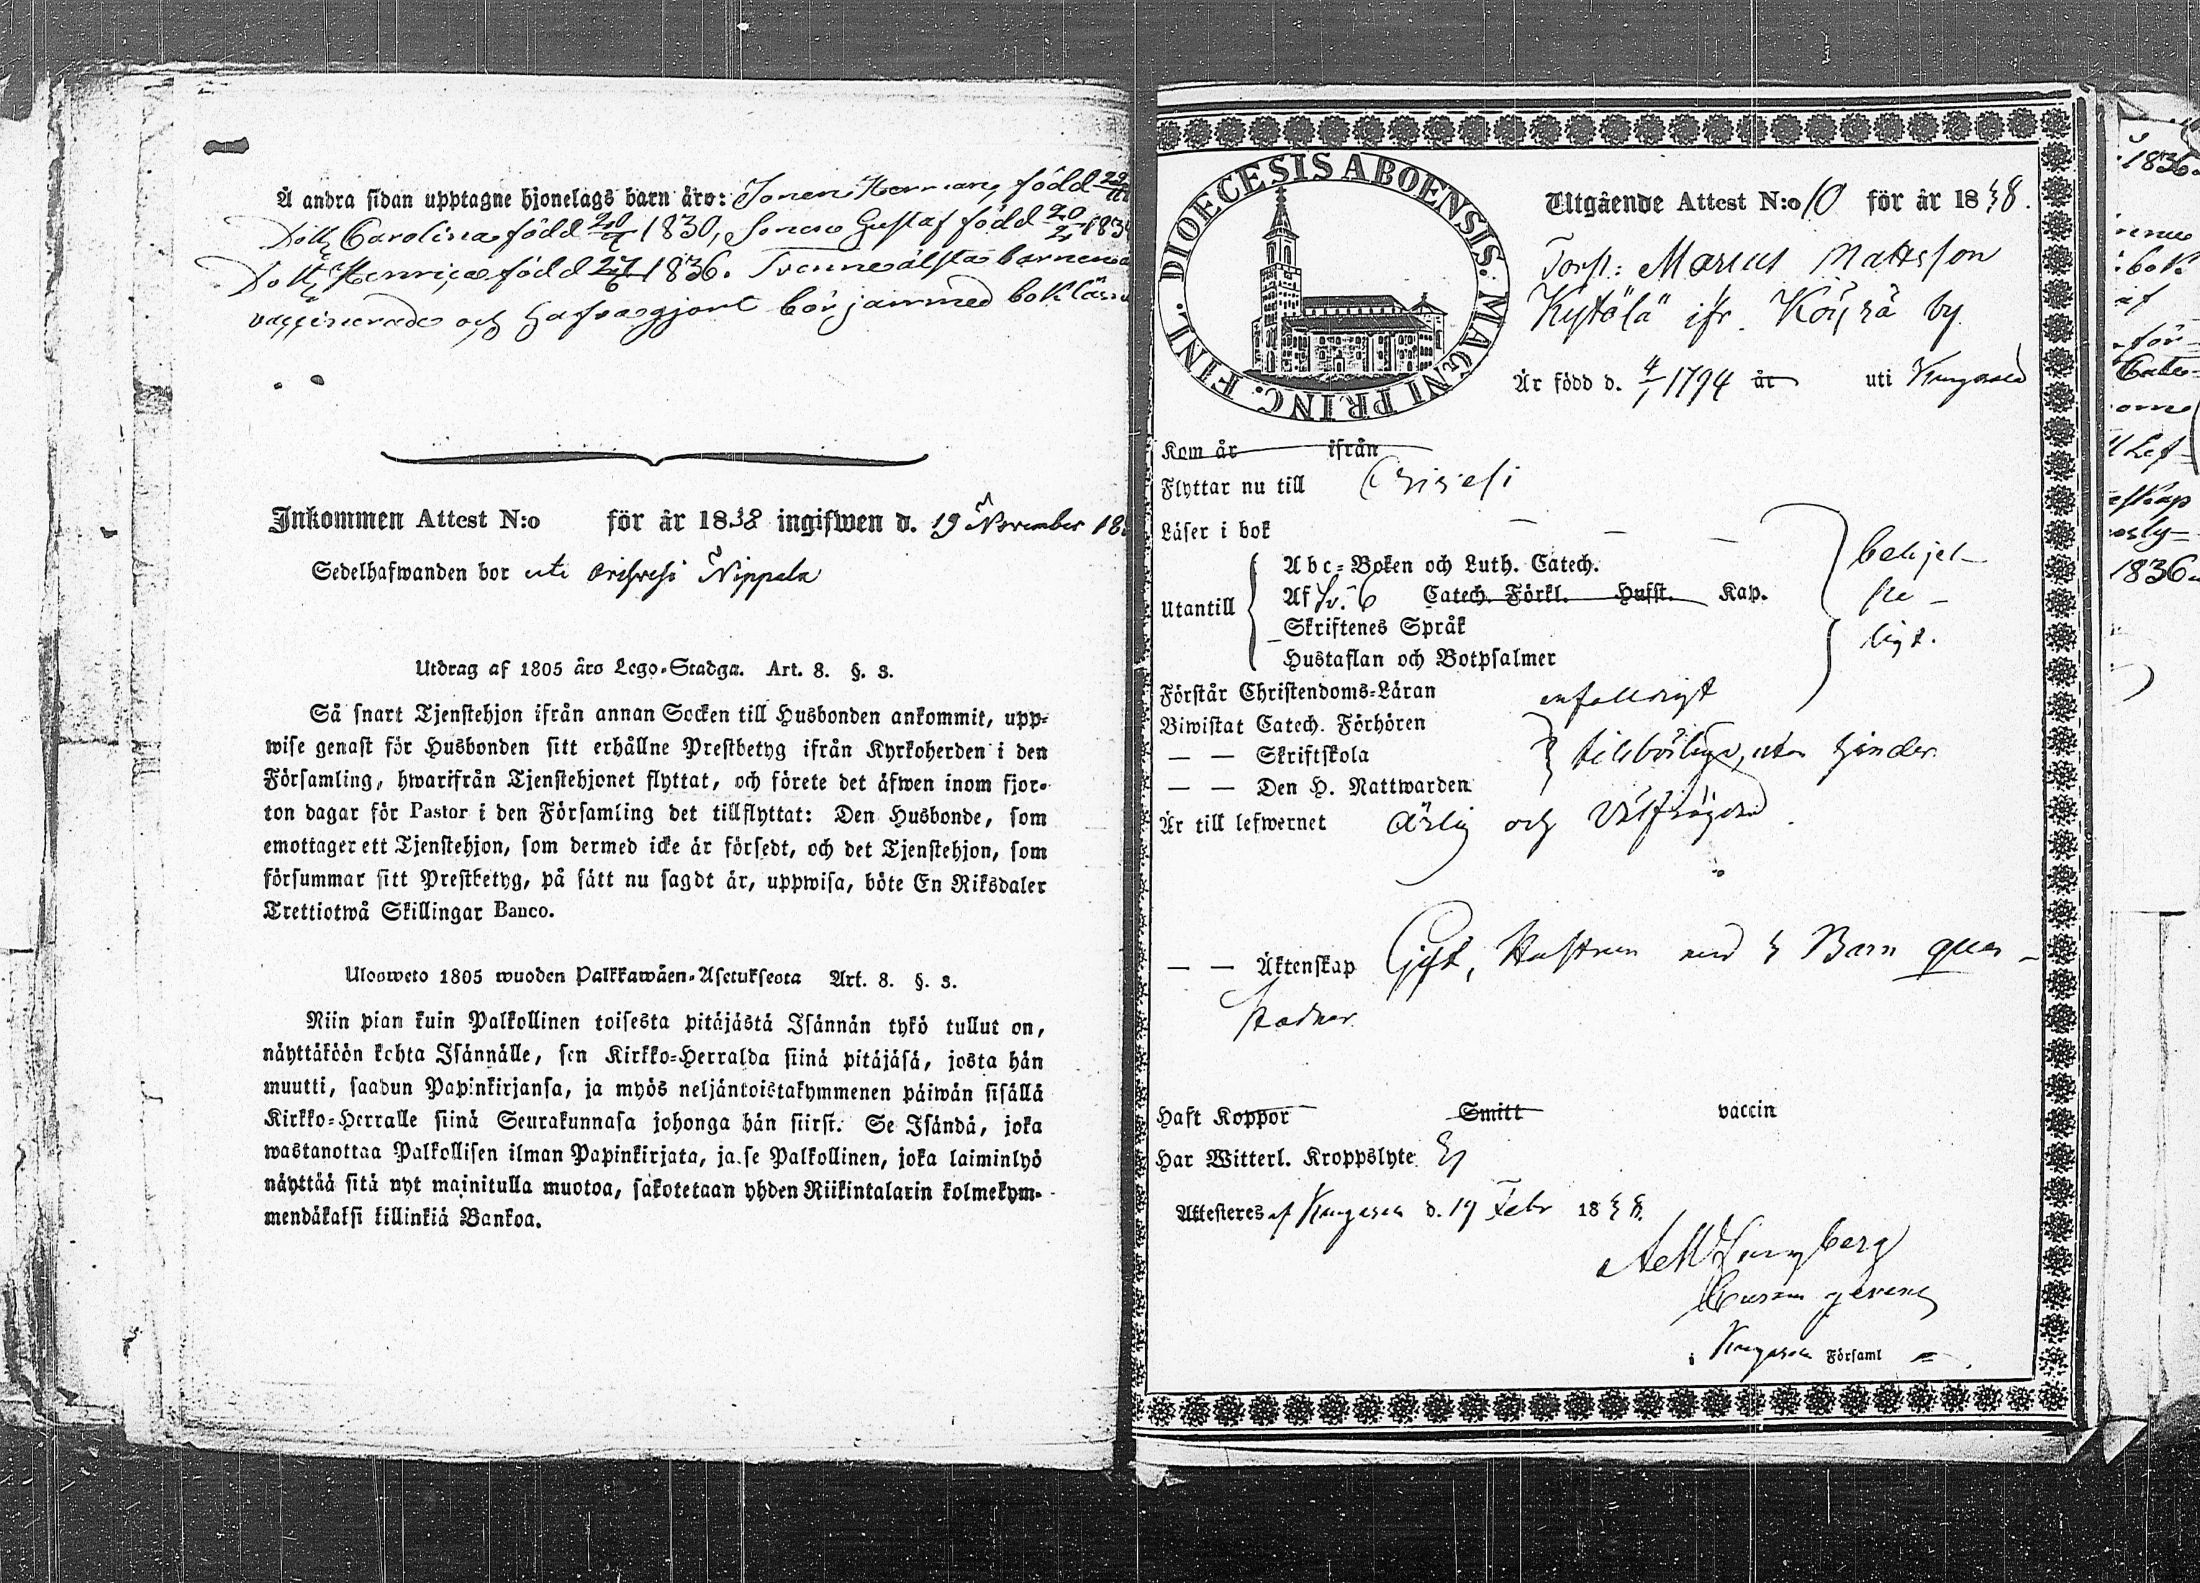 Å andra sidan upptagne hjonelags barn äro: Sonen Herman, född
Carolina född 1830, Sonen Gustaf född 20/2
Henrica född 1836. Tvenne älsta barnen
vaccinerade och hafva gjort början med
Inkommen Attest N:o för år 1838 ingifwen d. 19 November
Sedelhafwanden bor uti Orihvesi Nippala
Utdrag af 1805 års Lego-Stadga. Art. 8. §. 3.
Så snart Tjenstehjon ifrån annan Socken till Husbonden ankommit, upp-
wise genast för Husbonden sitt erhållne Prestbetyg ifrån Kyrkoherden i den
Församling, hwarifrån Tjenstehjonet flyttat, och förete det äfwen inom fjor-
ton dagar för Pastor i den Församling det tillflyttat: Den Husbonde, som
emottager ett Tjenstehjon, som dermed icke är försedt, och det Tjenstehjon, som
försummar sitt Prestbetyg, på sätt nu sagdt är, uppwisa, böte En Riksdaler
Trettiotwå Skillingar Banco.
Ulosweto 1805 wuoden Palkkawäen-Asetuksesta Art. 8. §. 3.
Niin pian kuin Palkollinen toisesta pitäjästä Isännän tykö tullut on,
näyttäköön kohta Isännälle, sen Kirkko-Herralda siinä pitäjäsä, josta hän
muutti, saadun Papinkirjansa, ja myös neljäntoistakymmenen päiwän sisällä
Kirkko-Herralle siinä Seurakunnasa johonga hän siirsi. Se Isändä, joka
wastanottaa Palkollisen ilman Papinkirjata, ja se Palkollinen, joka laiminlyö
näyttää sitä nyt mainitulla muotoa, sakotetaan yhden Riikintalarin kolmekym-
mendäkaksi killinkiä Bankoa.
DIOECESIS ABOENSIS. MAGNI PRINC. FINL.
Utgående Attest N:o 10 för år 1838.
Torp: Matts Mattsson
Kytölä ifr. by
Är född d. 4/1 1794 år uti Kangasala
Kom år ifrån
Flyttar nu till Orivesi
Läser i bok
Utantill
Abc-Boken och Luth. Catech.
Af Catech. Förkl. Hufst. Kap.
Skriftenes Språk
Hustaflan och Botpsalmer
behjel-
pe-
ligt.
Förstår Christendoms-Läran enfaldigt
Biwistat Catech. Förhören
— — Skriftskola
— — Den H. Nattwarden
tillbörligt, utan hinder.
Är till lefwernet Ärlig och Välfrägdad.
— — Äktenskap Gift, Hustrun med Barn qvar-
stadnar.
Haft Koppor Smitt vaccin
Har Witterl. Kroppslyte Ej
Attesteres af Kangasala d. 19 Febr 1838.
Ljungberg
Curam gerens
i Kangasala Församl
1836
för-
1836